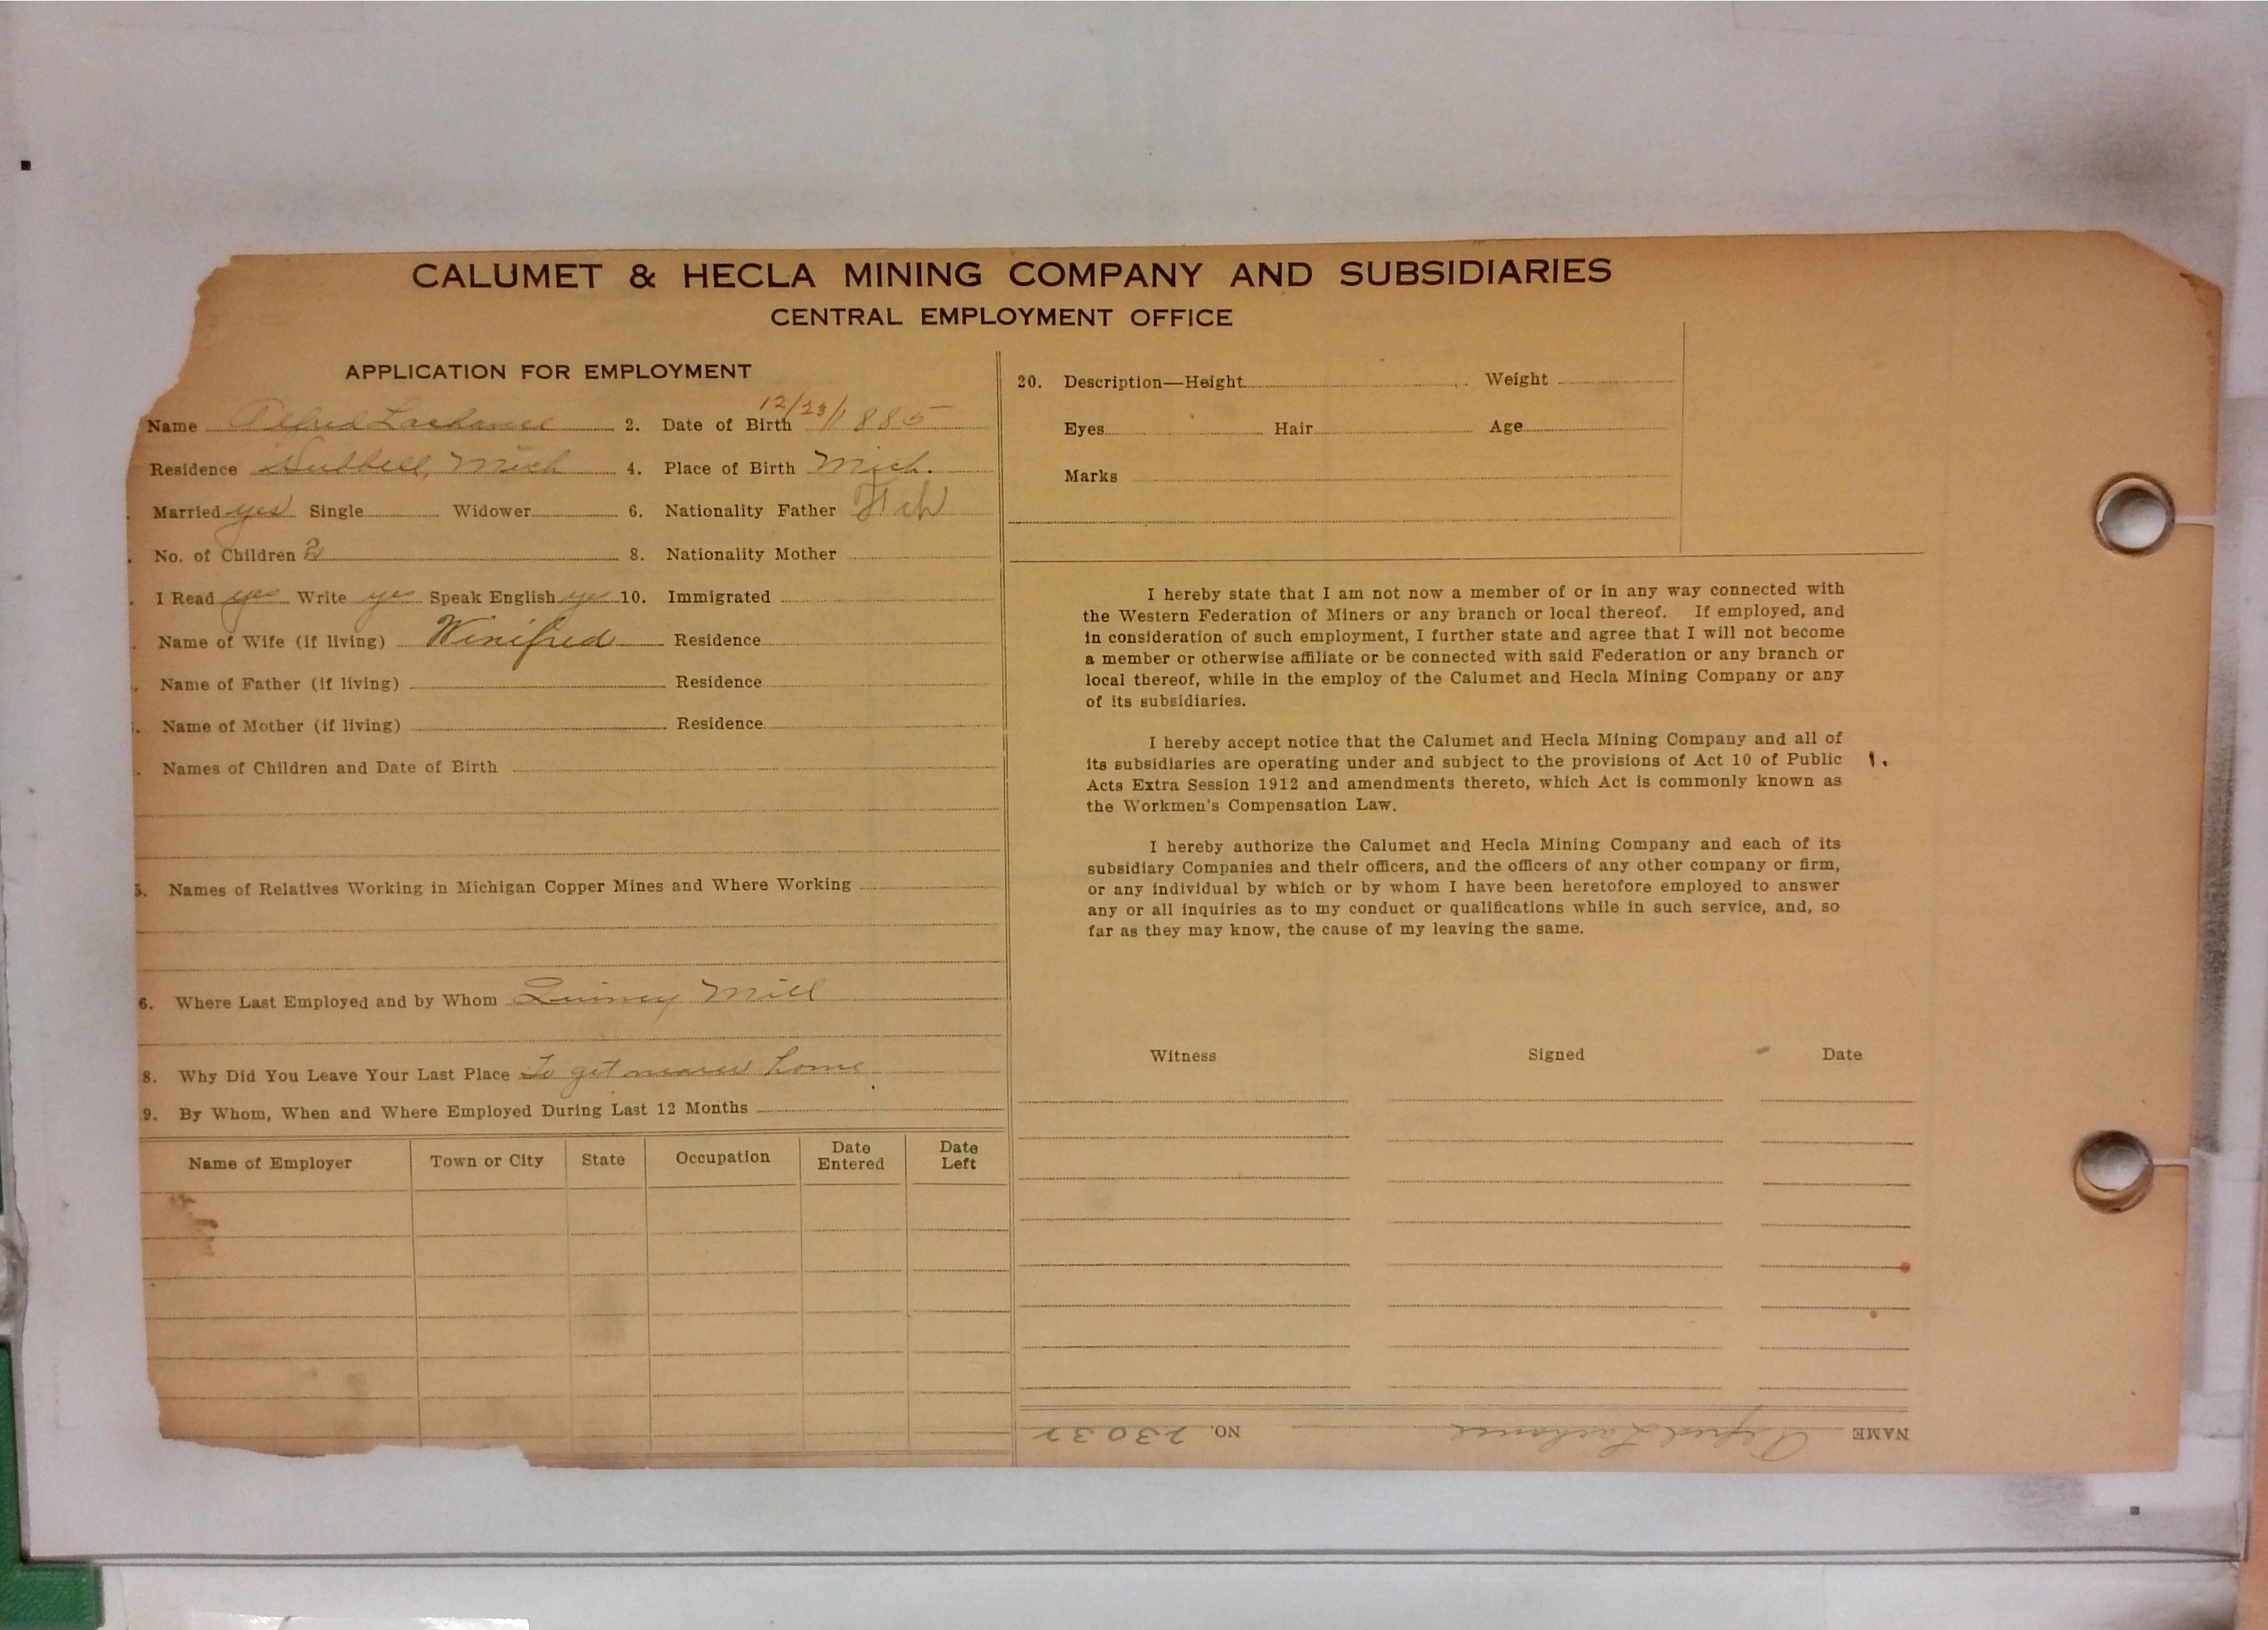 CALUMET & HECLA MINING COMPANY AND SUBSIDIARIES
CENTRAL EMPLOYMENT OFFICE
APPLICATION FOR EMPLOYMENT
Name Alfred Lachance 2. Date of Birth 12/23/1885
Residence Hubbell, Mich 4. Place of Birth Mich.
Married yes Single Widower 6. Nationality Father Fch
No. of Children 2 8. Nationality Mother
I Read yes Write yes Speak English yes 10. Immigrated
Name of Wife (if living) Winifred Residence
Name of Father (if living) Residence
Name of Mother (if living) Residence
Names of Children and Date of Birth
5. Names of Relatives Working in Michigan Copper Mines and Where Working
6. Where Last Employed and by Whom Quincy Mill
8. Why Did You Leave Your Last Place To get nearer home
9. By Whom, When and Where Employed During Last 12 Months
Name of Employer Town or City State Occupation Date Entered Date Left
20. Description—Height Weight
Eyes Hair Age
Marks
I hereby state that I am not now a member of or in any way connected with
the Western Federation of Miners or any branch or local thereof. If employed, and
in consideration of such employment, I further state and agree that I will not become
a member or otherwise affiliate or be connected with said Federation or any branch or
local thereof, while in the employ of the Calumet and Hecla Mining Company or any
of its subsidiaries.
I hereby accept notice that the Calumet and Hecla Mining Company and all of
its subsidiaries are operating under and subject to the provisions of Act 10 of Public
Acts Extra Session 1912 and amendments thereto, which Act is commonly known as
the Workmen's Compensation Law.
I hereby authorize the Calumet and Hecla Mining Company and each of its
subsidiary Companies and their officers, and the officers of any other company or firm,
or any individual by which or by whom I have been heretofore employed to answer
any or all inquiries as to my conduct or qualifications while in such service, and, so
far as they may know, the cause of my leaving the same.
Witness Signed Date
NAME Alfred Lachance NO. 23032